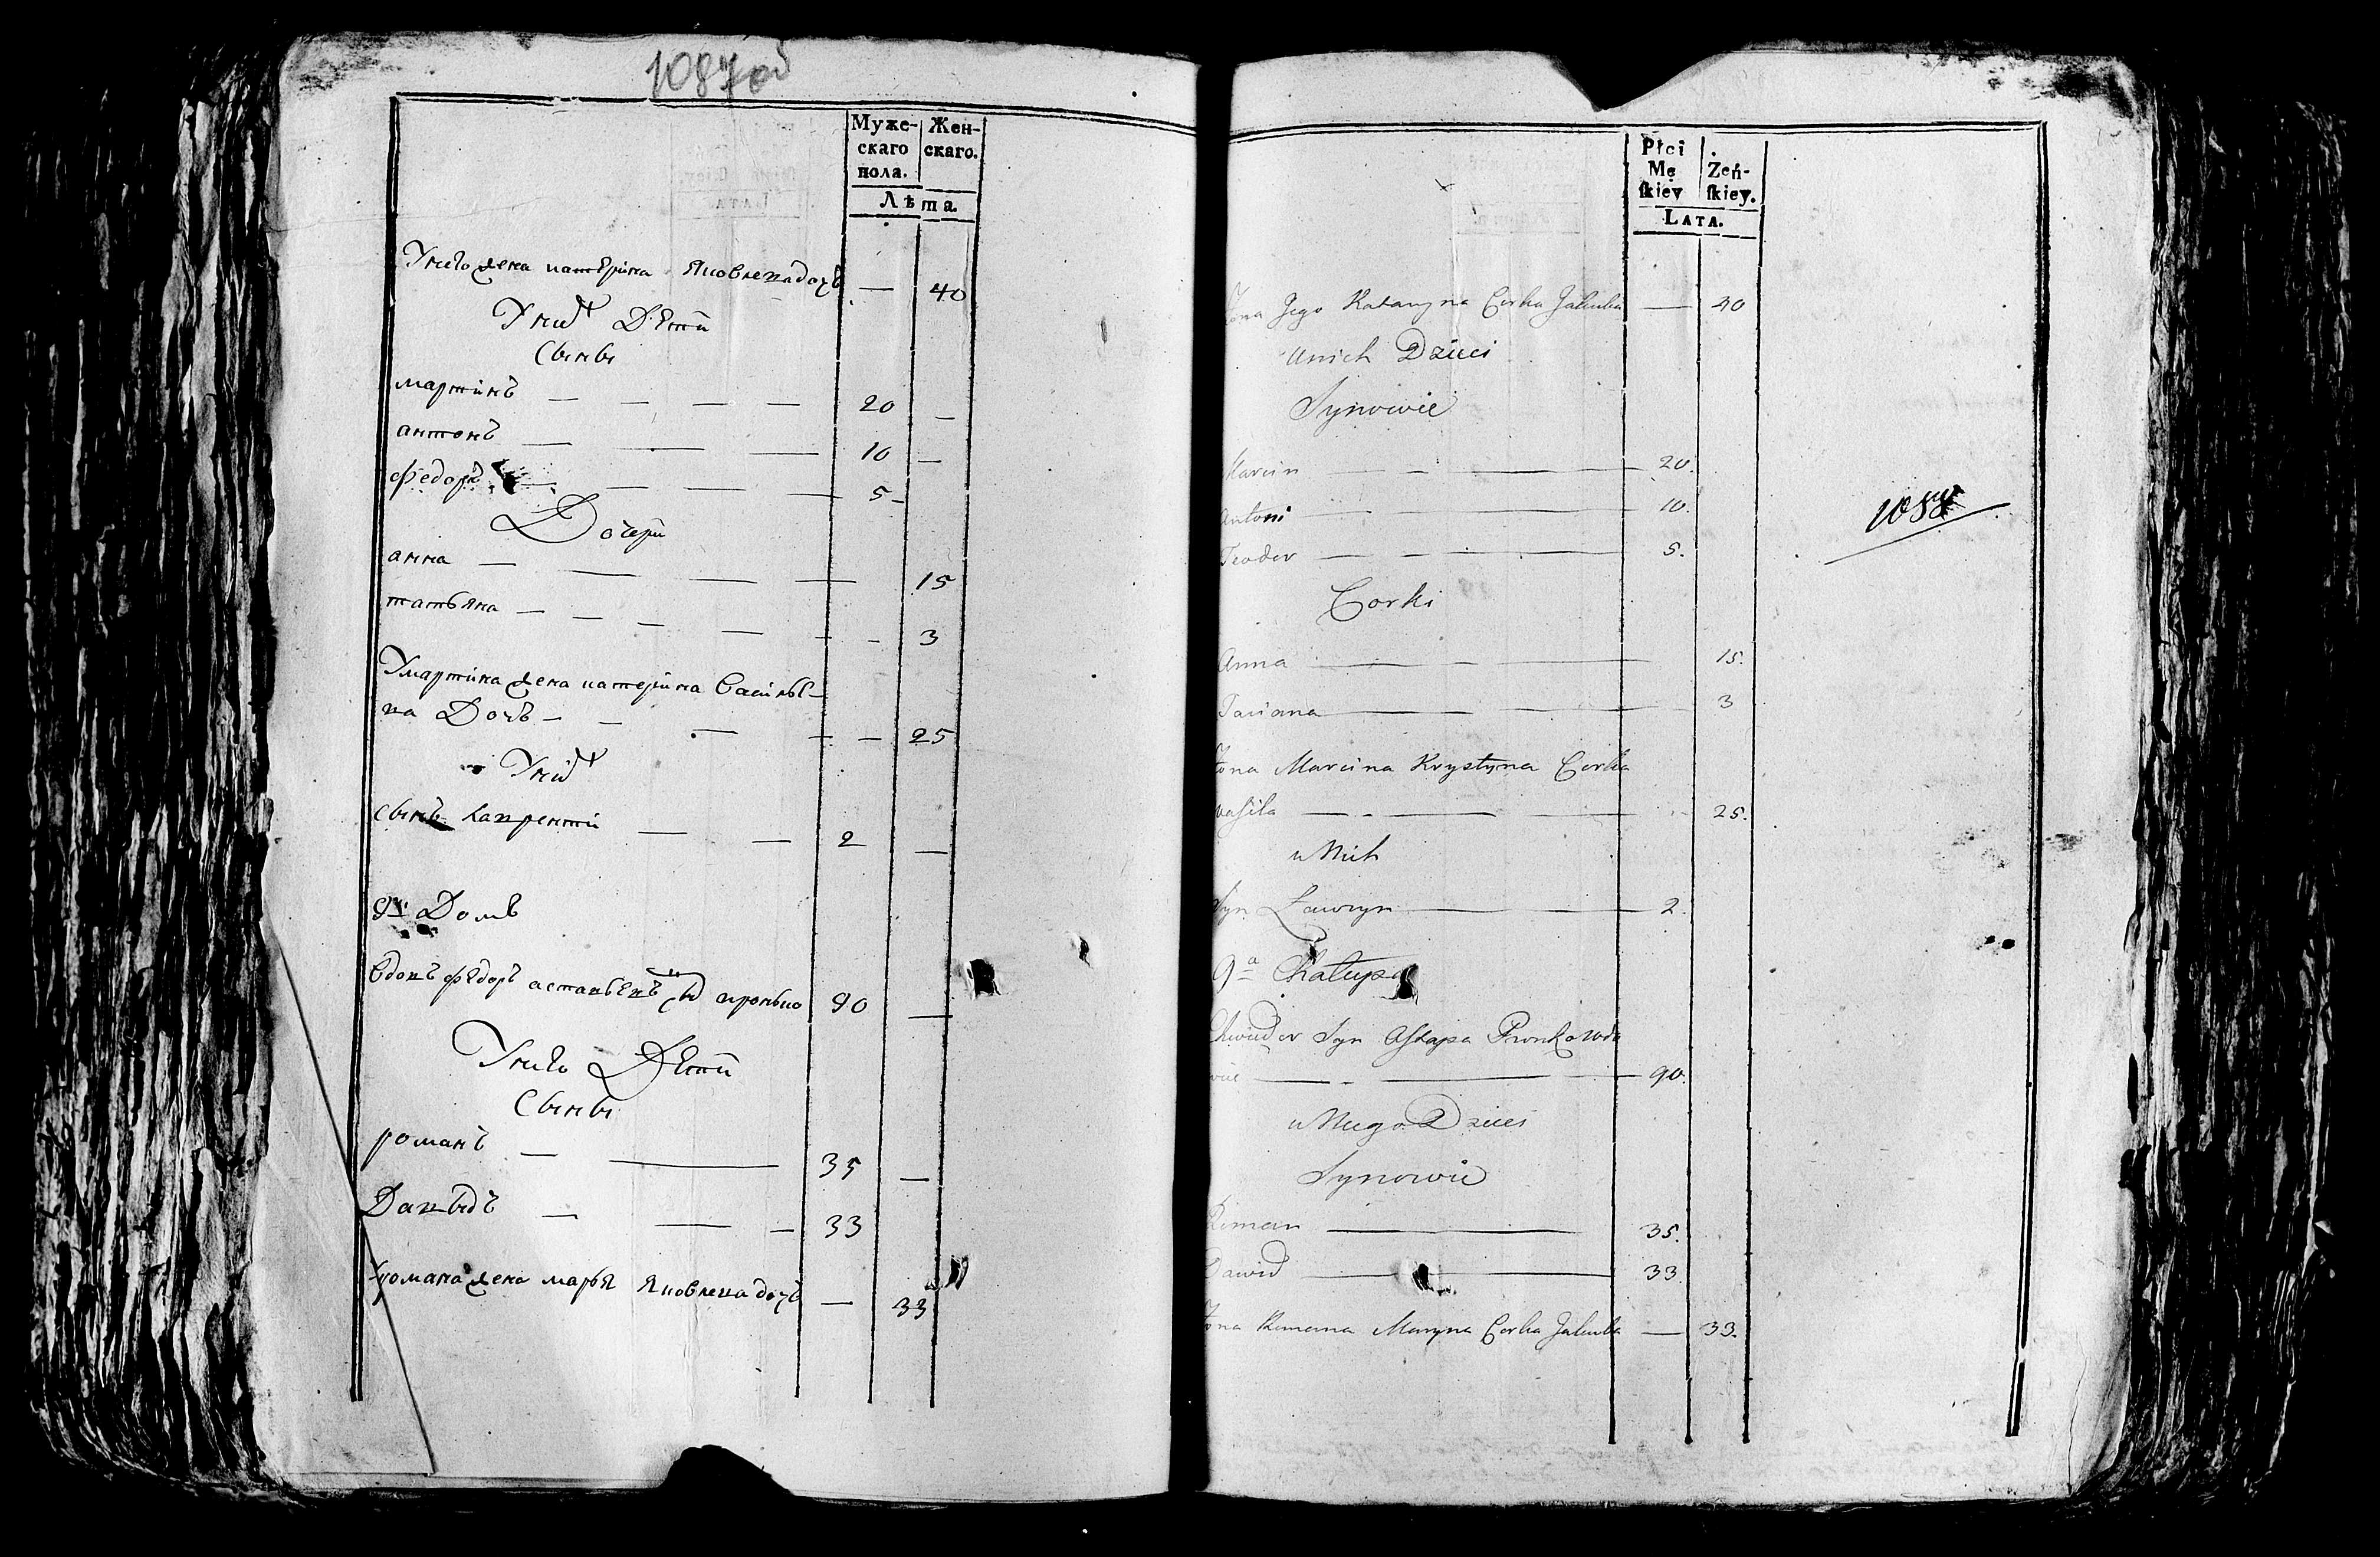 1087об
Муже-
скаго
пола.
Жен-
скаго.
Лѣта.
Унего жена катерина Яковлева дочь — 40
Унихъ Дѣти
Сыны
мартинъ — — — — 20 —
антонъ — — — 10 —
федоръ — — — — 5 —
Дочери
анна — — — — 15
татьяна — — — — — — 3
Умартина жена катерина Василье-
ва Дочь — — — — — 25
Унихъ
сынъ лаврентій — — 2 —
9й Домъ
вдовъ федоръ астапьевъ сынъ 90 —
Унего Дѣти
Сыны
романъ — — 35 —
Давыдъ — — — 33
Уромана жена марья Яковлева дочь — 33
Płci
Mę
ſkiey
Żeń-
ſkiey.
LATA.
Żona Jego Katarzyna Corka Jakuba — 40
Unich Dzieci
Synowie
Marcin — — — — 20.
Antoni — — — 10.
Teodor — — — 5.
Corki
Anna — — — 15.
Taciana — — — 3
Żona Marcina Krystyna Corka
Wasila — — — — 25.
u Nich
Syn Ławryn — — 2.
9a Chałupa
Chwiedor Syn Astapa
— — — — 90.
u Niego Dzieci
Synowie
Roman — 35.
Dawid — 33
Żona Romana Maryna Corka Jakuba — 33.
1088